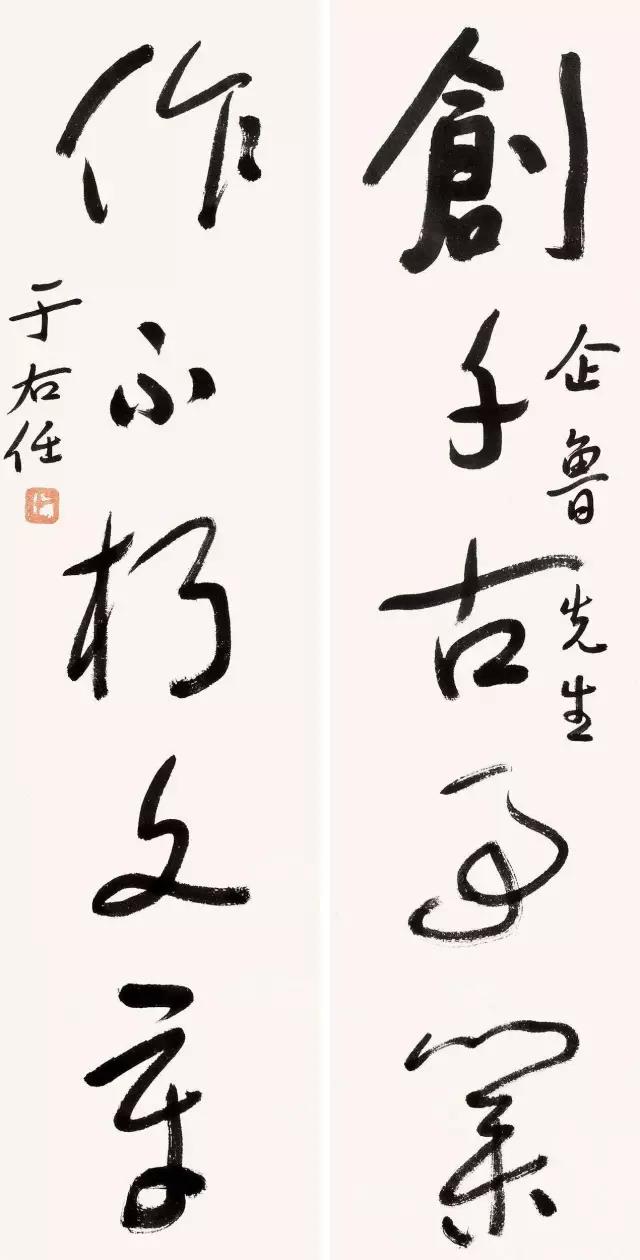 創千古事業
企魯先生
作不朽文章
于右任